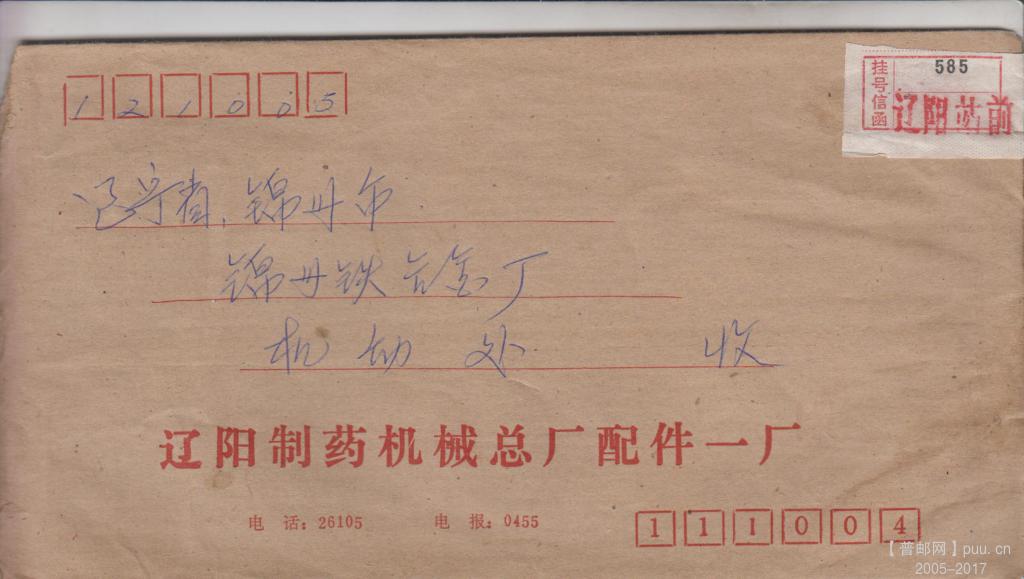 121005
挂号信函
585
辽阳站前
辽宁省,锦州市
锦州铁合金厂
机动处 收
辽阳制药机械总厂配件一厂
电 话:26105 电 报:0455
111004
【普邮网】puu.cn
2005-2017